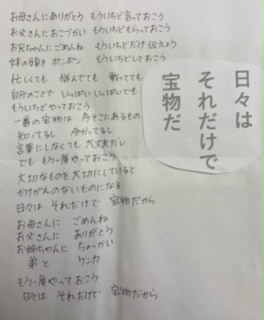 お母さんにありがとう もういちど言っておこう
お父さんにおこづかい もういちどもらっておこう
お兄ちゃんにごめんね もういちどだけ伝えよう
妹の頭をポンポン もういちどしておこう
忙しくても 悩んでても 戦ってても
自分のことで いっぱいいっぱいでも
もういちどやっておこう
一番の宝物は 今そこにあるもの
知ってるし 分かってるし
言葉にしなくても 大丈夫だし
でも もう一度やっておこう
大切なものを大切にしていると
かけがえのないものになる
日々は それだけで 宝物だから
お母さんに ごめんね
お父さんに ありがとう
お姉ちゃんに ちょっかい
弟と ケンカ
もう一度やっておこう
日々は それだけで 宝物だから
日々は
それだけで
宝物だ